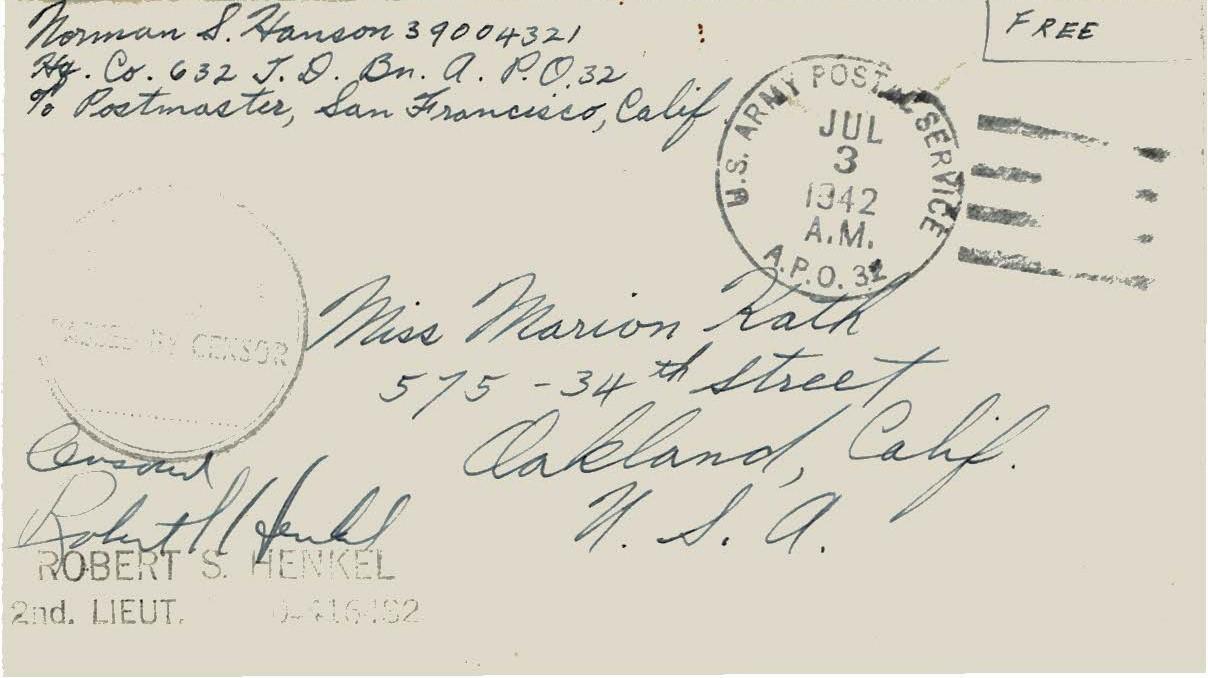 Norman S. Hanson 39004321
Hq. Co. 632 T. D. Bn. A. P.O. 32
℅ Postmaster, San Francisco, Calif.
FREE
U.S. ARMY POSTAL SERVICE
JUL
3
1942
A.M.
A.P.O. 32
PASSED BY CENSOR
Miss Marion Rath
575 - 34th Street
Oakland, Calif.
U. S. A.
Censored
Robert S Henkel
ROBERT S. HENKEL
2nd. LIEUT.